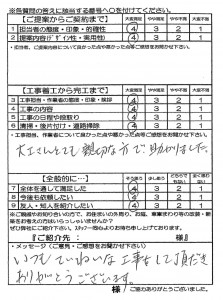 ※各質問の答えに該当する番号へ○を付けてください
【ご提案からご契約まで】 大変満足 やや満足 やや不満 大変不満
1 担当者の態度・印象・的確性 4 3 2 1
2 提案内容(デザイン性・実用性) 4 3 2 1
【工事着工から完工まで】 大変満足 やや満足 やや不満 大変不満
3 工事担当、作業者の態度・印象・挨拶 4 3 2 1
4 工事の内容 4 3 2 1
5 工事の日程や段取り 4 3 2 1
6 清掃・後片付け・道路掃除 4 3 2 1
大工さんとても親切な方で助かりました。
【全般的に…】
7 全体を通して満足した 4 3 2 1
8 今後も依頼したい 4 3 2 1
9 友人・知人を紹介したい 4 3 2 1
【ご紹介先: 様】
・メッセージ(ご意見・ご感想をお聞かせ下さい)
いつもていねいな工事をして頂だき
ありがとうございます。
様
ご協力ありがとうございました。